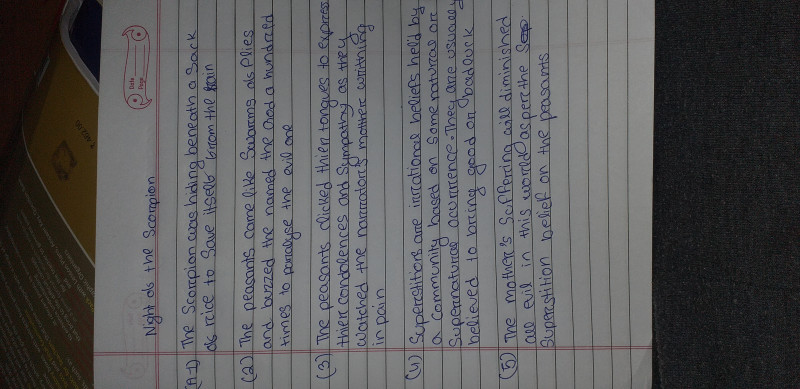 Date
Page
Night of the Scorpion
(A-1) The Scorpion was hiding beneath a Sack
of rice to Save itself from the rain
(2) The peasants came like Swarms of flies
and buzzed the named the God a hundred
times to paralyse the evil one
(3) The peasants clicked thier tongues to express
thier condolences and Sympathy as they
watched the narrator's mother writhing
in pain
(4) Superstitions are irrational beliefs held by
a Community based on Some natural or
Supernatural ocurrence. They are usually
believed to bring good or bad luck
(5) The mother's Suffering will diminished
all evil in this world as per the
Superstition belief on the peasants